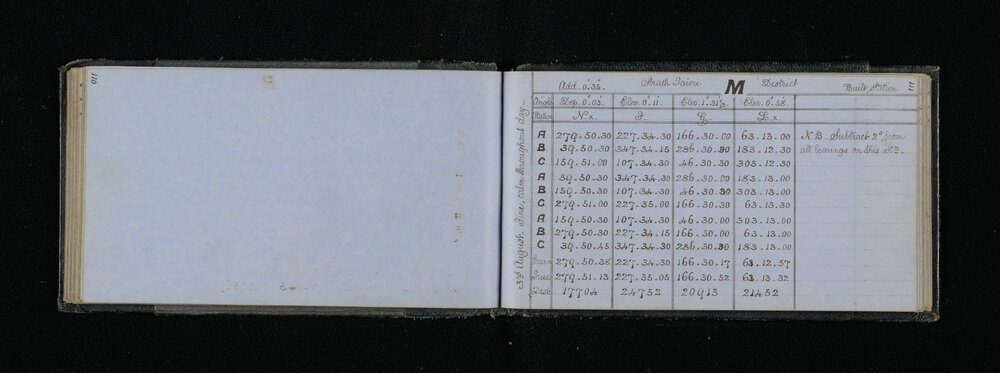 110
111
Add. 0'.35" Strath Taieri M District Built Station
Angle Dep. 0°.03' Elev. 0°.11' Elev. 1°.31½' Elev. 0°.58'
Station N.x. J. G. L.x.
A 279.50.30 227.34.30 166.30.00 63.13.00 N.B. Subtract 2° from
B 39.50.30 347.34.15 286.30.30 183.12.30 all bearings on this Stn
C 159.51.00 107.34.30 46.30.30 303.12.30
A 39.50.30 347.34.30 286.30.00 183.13.00
B 159.50.30 107.34.30 46.30.30 303.13.00
C 279.51.00 227.35.00 166.30.30 63.13.30
A 159.50.30 107.34.30 46.30.00 303.13.00
B 279.50.30 227.34.15 166.30.00 63.13.00
C 39.50.45 347.34.30 286.30.30 183.13.00
Mean 279.50.38 227.34.30 166.30.17 63.12.57
True 279.51.13 227.35.05 166.30.52 63.13.32
Dist 17704 24752 20913 21452
3rd August. Fine, calm throughout day